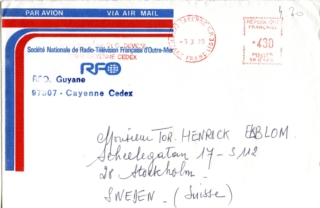 PAR AVION VIA AIR MAIL
4,30
REPUBLIQUE
FRANÇAISE
430
POSTES
Société Nationale de Radio-Télévision Française d'Outre-Mer
CEDEX
RFO
RFO. Guyane
97307 - Cayenne Cedex
Monsieur TOR. HENRICK EKBLOM.
Scheelegatan 17 - S 112
28 Stockholm.
SWEDEN - (Suisse)